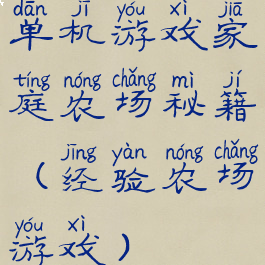 dān jī yóu xì jiā
单机游戏家
tíng nóng chǎng mì jí
庭农场秘籍
jīng yàn nóng chǎng
（经验农场
yóu xì
游戏）